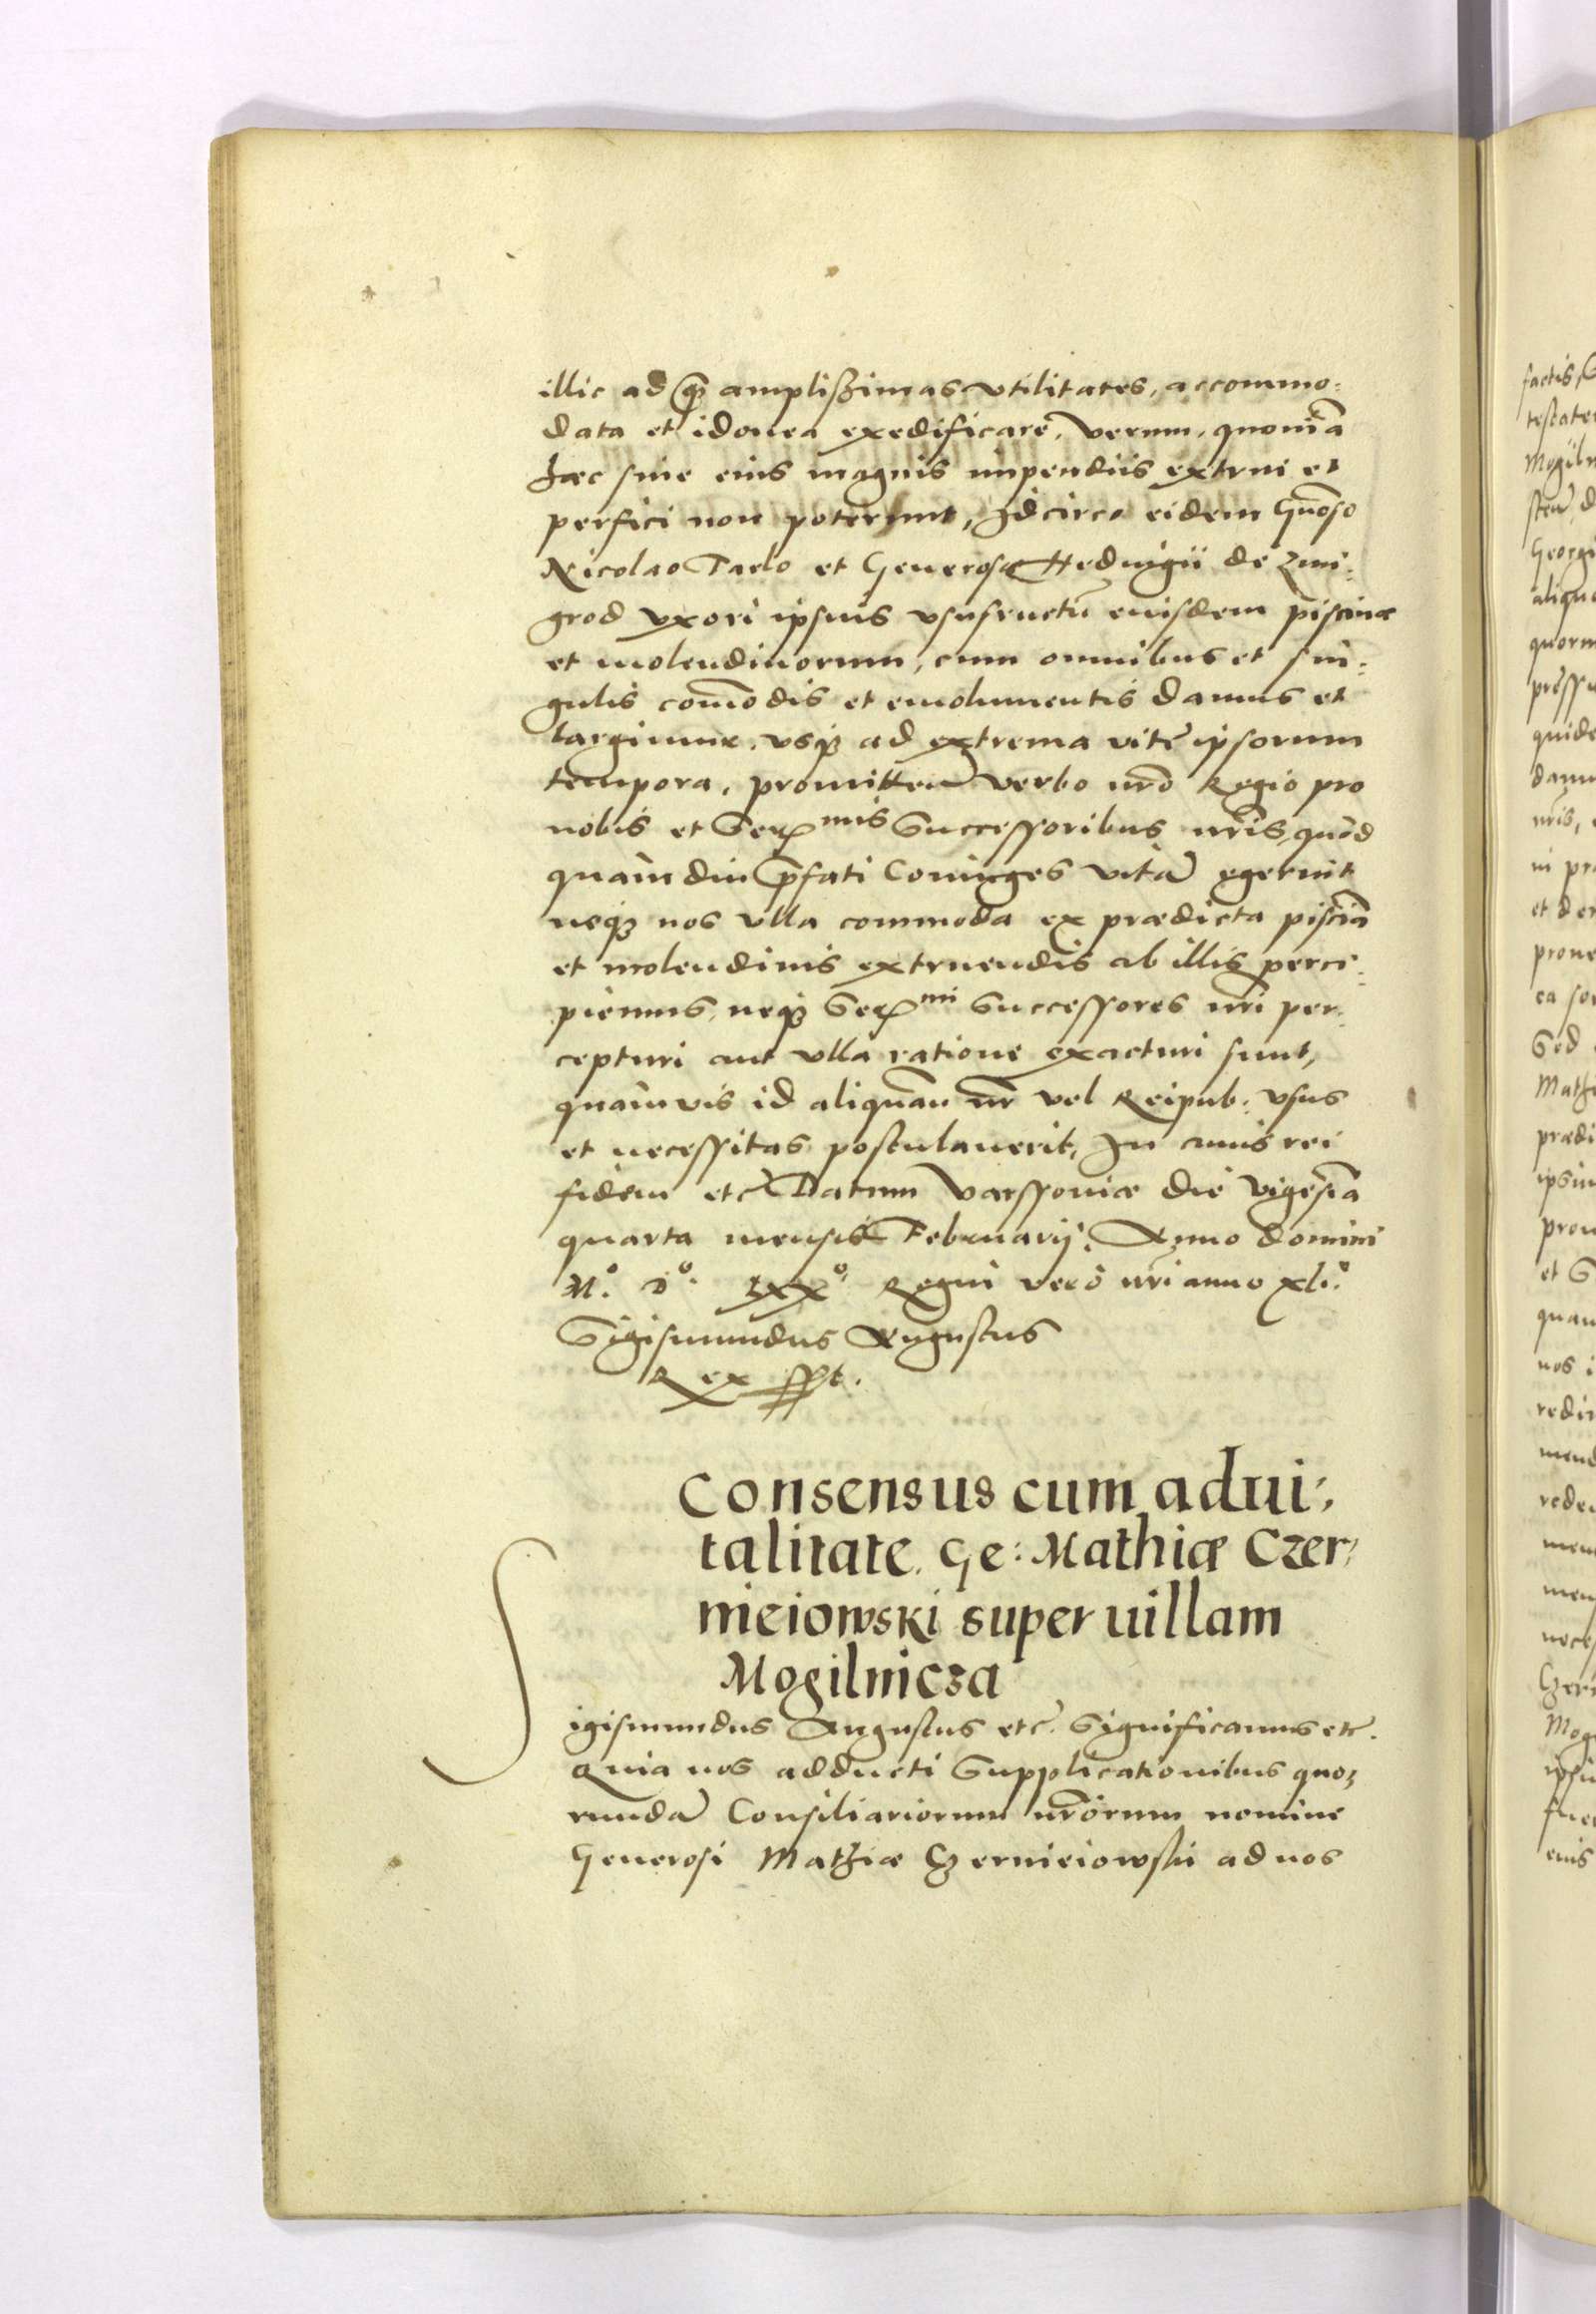 illic ad qꝫ amplißimas vtilitates, accommo:
data et idonea exedificare, verum, quoniā
hæc sine eius magnis impendiis extrui et
perfici non poterunt, Idcirco eidem Gn̄oso
Nicolao Tarlo et Generosæ Hedvigii de Zmi:
grod vxori ipsius vsufructū eiusdem piscinæ
et molendinorum, cum omnibus et sin:
gulis com̄odis et emolumentis damus et
largimur, vsqꝫ ad extrema vitę ipsorum
tempora, promitten̄ verbo nr̄o Regio pro
nobis et Ser mis Successoribus nr̄is, quod
quamdiu p̄fati Coniuges vitā egerint
neqꝫ nos vlla commoda ex prædicta pisciā
et molendinis extruendis ab illis perci:
piemus, neqꝫ Ser mi Successores nr̄i per:
cepturi aut vlla ratione exacturi sunt,
quamvis id aliquān nr̄ vel Reipub: vsus
et necessitas postulauerit, In cuius rei
fidem etc̄ Datum Varssoviæ die vigesīa
quarta mensis Februarij. Anno domini
M.º D.º LXXº Regni vero nr̄i anno xli.º
Sigismundus Augustus
Rex sspt.
Consensus cum adui:
talitate. Ge: Mathiæ Czer:
nieiowski super uillam
Mogilnicza
Sigismundus Augustus etc̄. Significamus etc̄.
Quia nos adducti Supplicationibus quo:
rundā Consiliariorum nr̄orum nomine
Generosi Mathiæ Czernieiowski ad nos